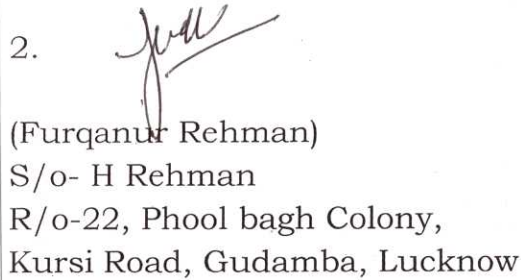 2.
(Furqanur Rehman)
S/o- H Rehman
R/o-22, Phool bagh Colony,
Kursi Road, Gudamba, Lucknow